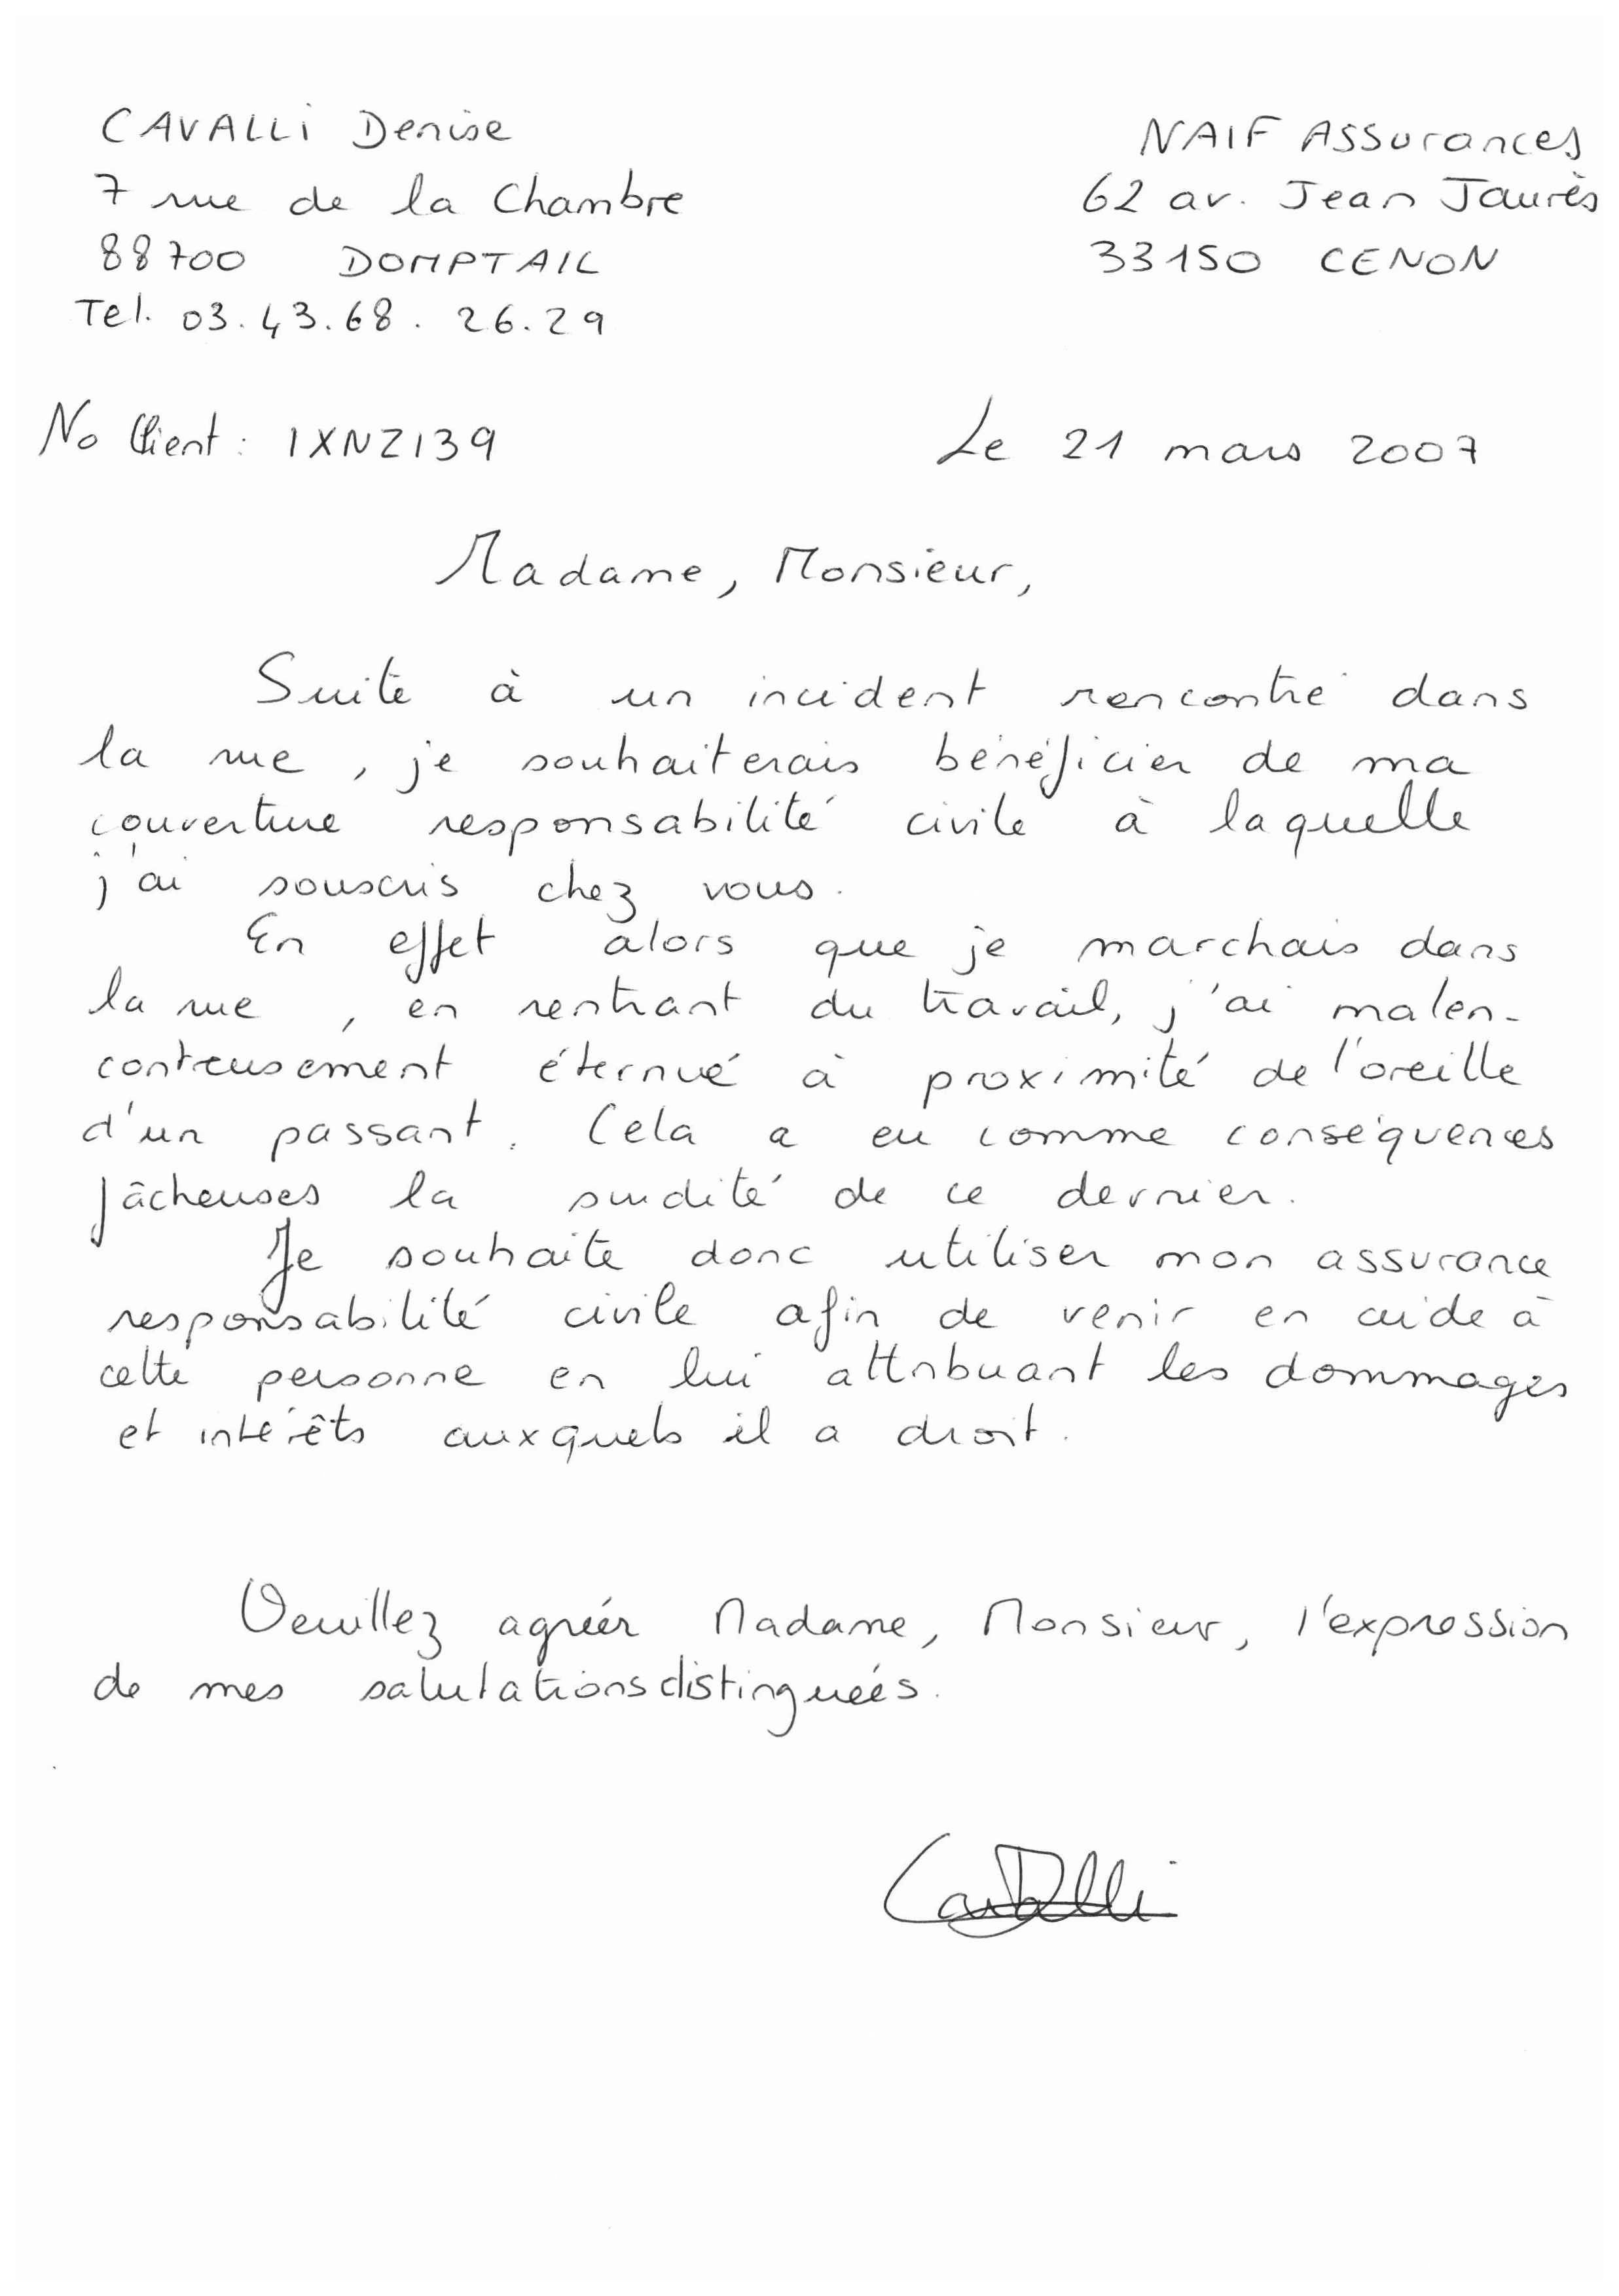 CAVALLI Denise
7 rue de la Chambre
88700 DOMPTAIL
Tel. 03.43.68.26.29
NAIF Assurances
62 av. Jean Jaurès
33150 CENON
No Client : IXNZ139
Le 21 mars 2007
Madame, Monsieur,
Suite à un incident rencontré dans
la rue, je souhaiterais bénéficier de ma
couverture responsabilité civile à laquelle
j'ai souscris chez vous.
En effet alors que je marchais dans
la rue, en rentrant du travail, j'ai malen-
contreusement éternué à proximité de l'oreille
d'un passant. Cela a eu comme conséquences
fâcheuses la surdité de ce dernier.
Je souhaite donc utiliser mon assurance
responsabilité civile afin de venir en aide à
cette personne en lui attribuant les dommages
et intérêts auxquels il a droit.
Veuillez agréér Madame, Monsieur, l'expression
de mes salutations distinguéés.
Cavalli